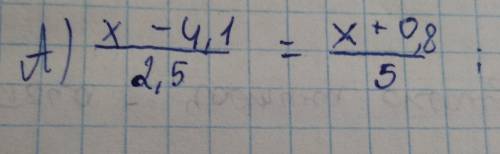 А) x - 4,1 / 2,5 = x + 0,8 / 5 ;